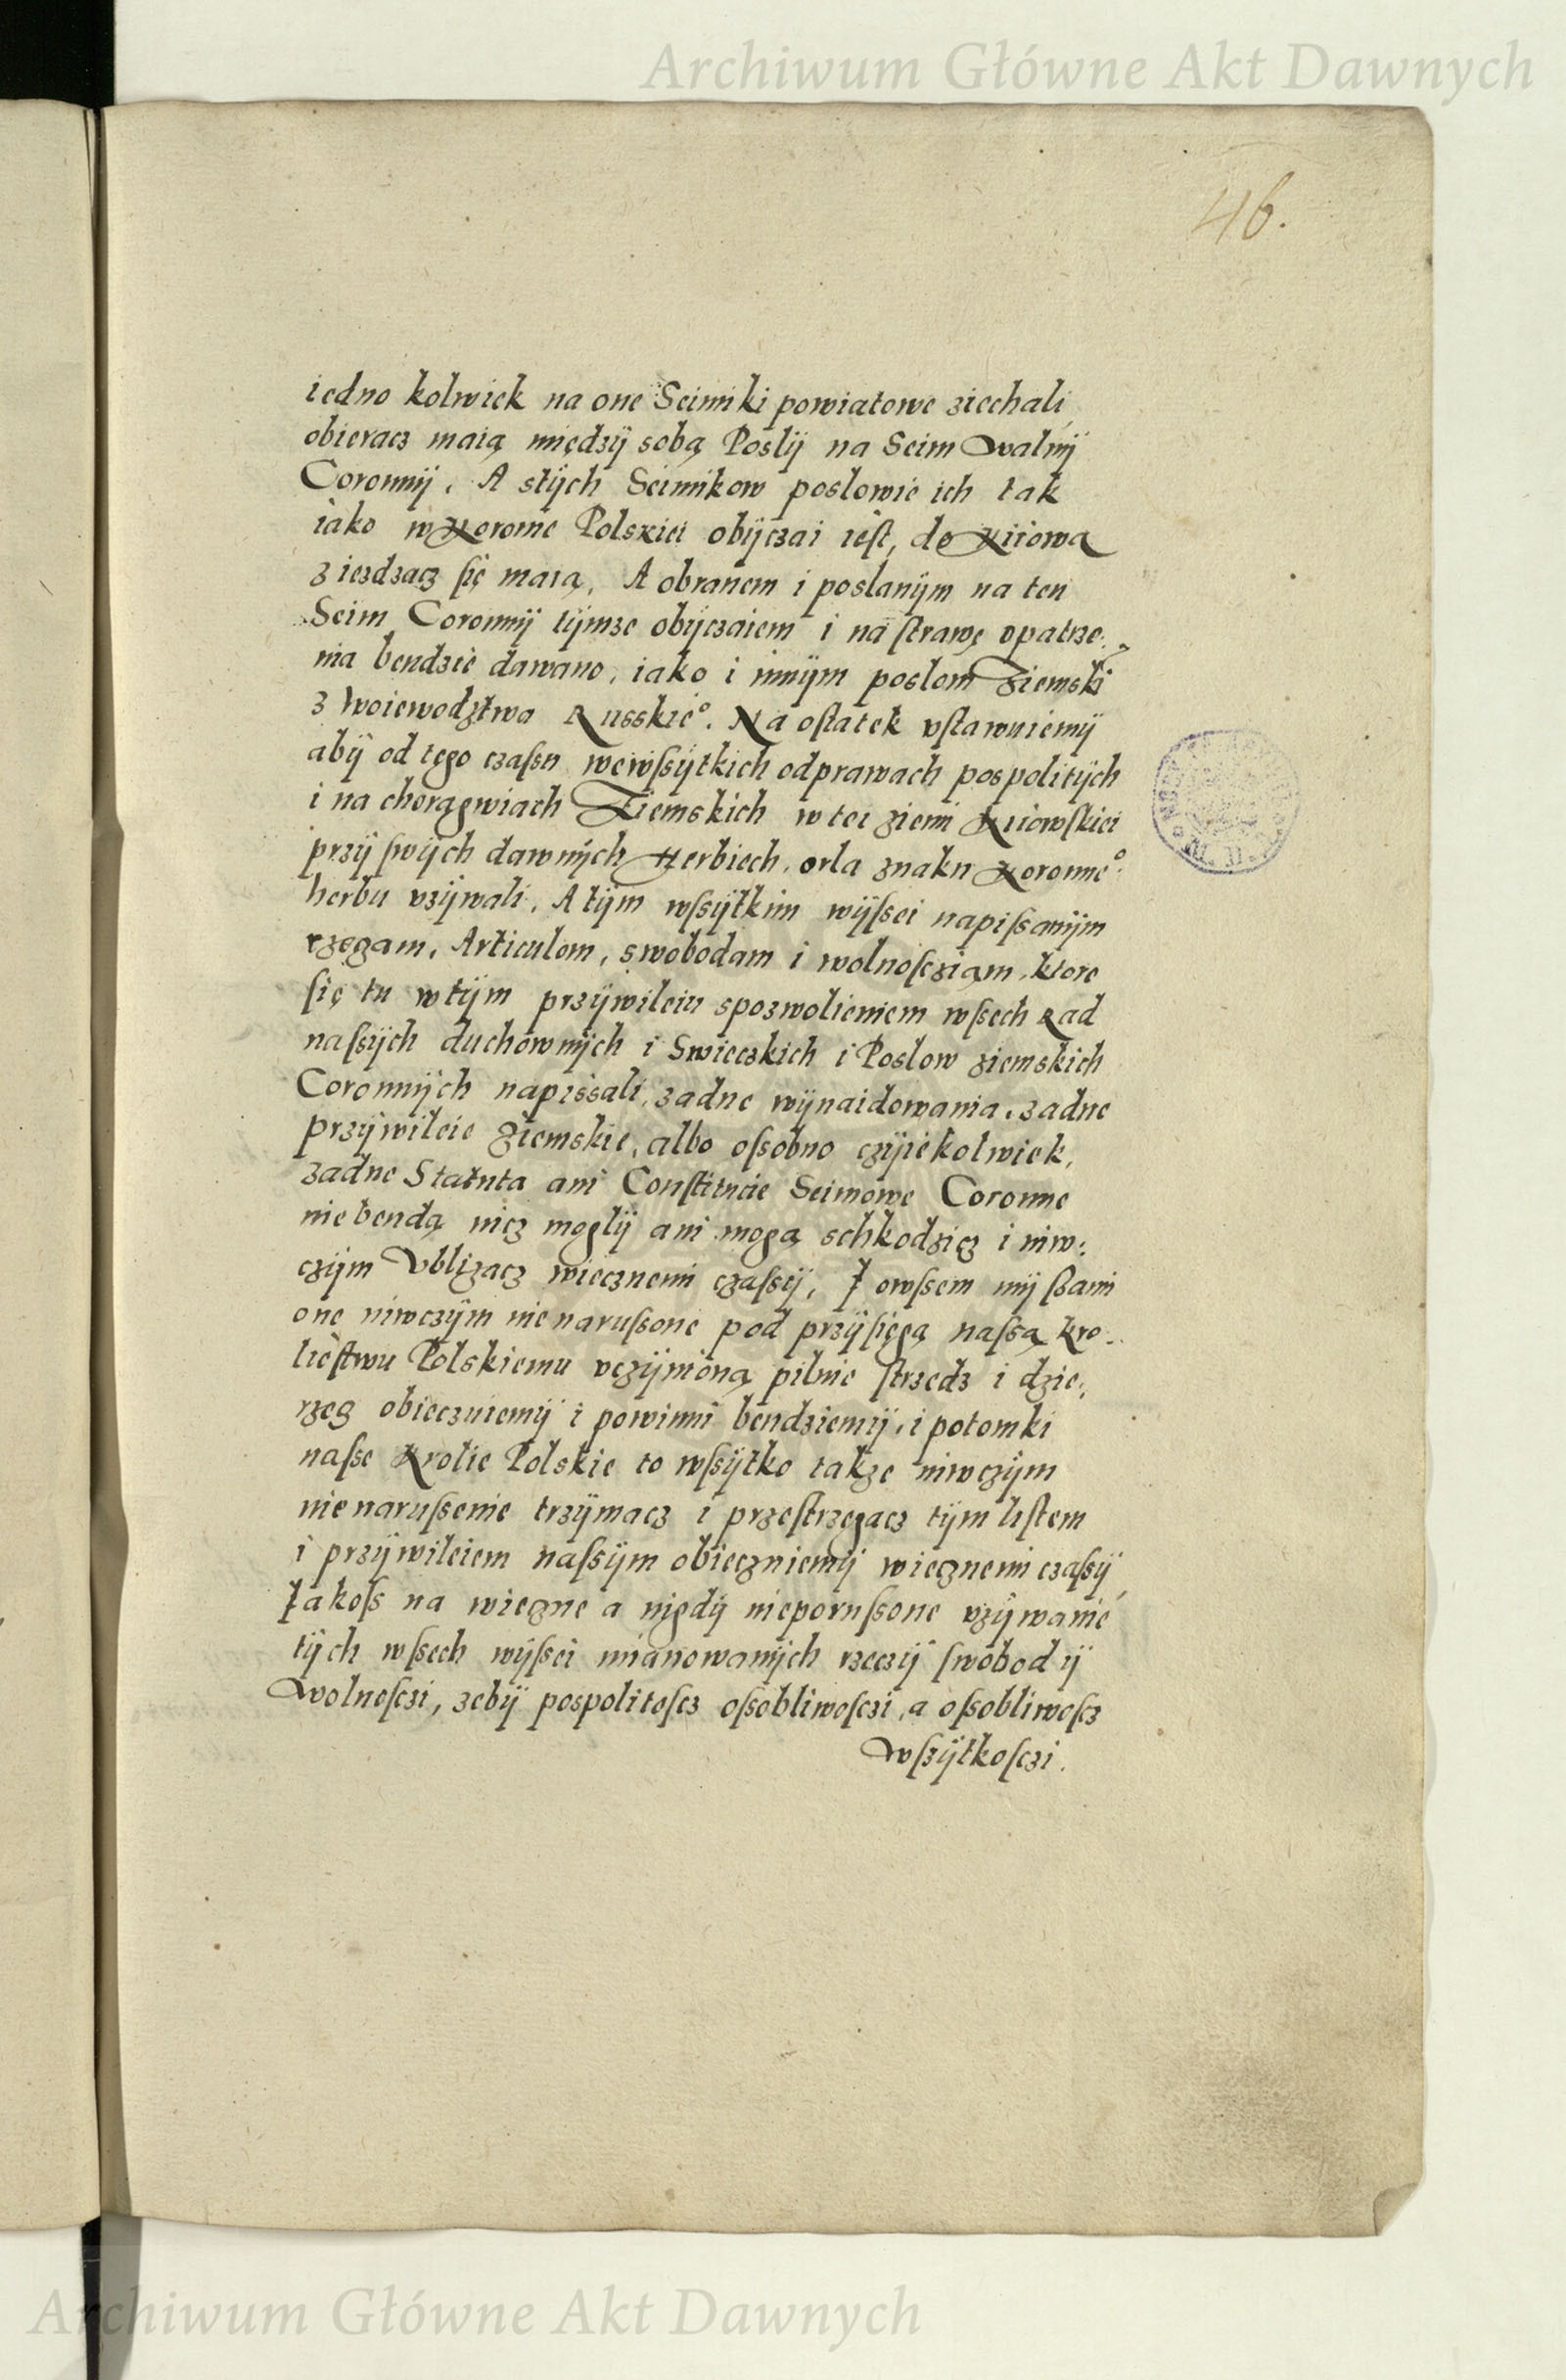 Archiwum Główne Akt Dawnych
46.
iedno kolwiek na one Seimiki powiatowe ziechali,
obieracz maią międzÿ sobą Poslÿ na Seim walnÿ
Coronnÿ. A stÿch Seimikow poslowie ich tak
iako w Koronie Polskiei obÿczai iest, do Kiiowa
ziezdzacz się maią. A obranem i poslanÿm na ten
Seim Coronnÿ tÿmze obÿczaiem i na strawę opatrze:
nia bendzie dawano, iako i innÿm poslom Ziemski
z Woiewodztwa Russkie°. Na ostatek ustawuiemÿ
abÿ od tego czaſsu wewſsÿtkich odprawach pospolitÿch
i na chorągwiach Ziemskich w tei ziemi Kiiowſkiei
przÿ ſwÿch dawnÿch Herbiech, orla znaku Koronne°
herbu vzÿwali. A tÿm wſsÿtkim wÿſsei napiſsanÿm
rzeczam, Articulom, swobodam i wolnoſcziam, ktore
ſię tu w tÿm przÿwileiu spozwolieniem wſsech Rad
naſsÿch duchownÿch i Swieczkich i Poslow ziemskich
Coronnÿch napissali, zadne wÿnaidowania, zadne
przÿwileie Ziemskie, albo oſsobno czÿiekolwiek,
zadne Statuta ani Conſtitucie Seimowe Coronne
nie bendą nicz moglÿ ani mogą schkodzicz i niw:
czÿm Vblizacz wiecznemi czaſsÿ, I owſsem mÿ ſsami
one niwczÿm nie naruſsone pod przÿſięgą naſsą kro:
lieſtwu Polskiemu vczÿnioną pilnie ſtrzedz i dzie:
rzeg obieczuiemÿ i powinni bendziemÿ, i potomki
naſse Krolie Polskie to wſsÿtko takze niwczÿm
nie naruſsenie trzÿmacz i przeſtrzegacz tÿm liſtem
i przÿwileiem naſsÿm obieczuiemÿ wiecznemi czaſsÿ,
Iakoſs na wieczne a nigdÿ nieporuſsone vzÿwanie
tÿch wſsech wÿſsei mianowanÿch rzeczÿ ſwobod ÿ
wolnoſczi, zebÿ pospolitoſcz oſsobliwoſczi, a oſsobliwoſcz
wſzÿtkoſczi.
Archiwum Główne Akt Dawnych